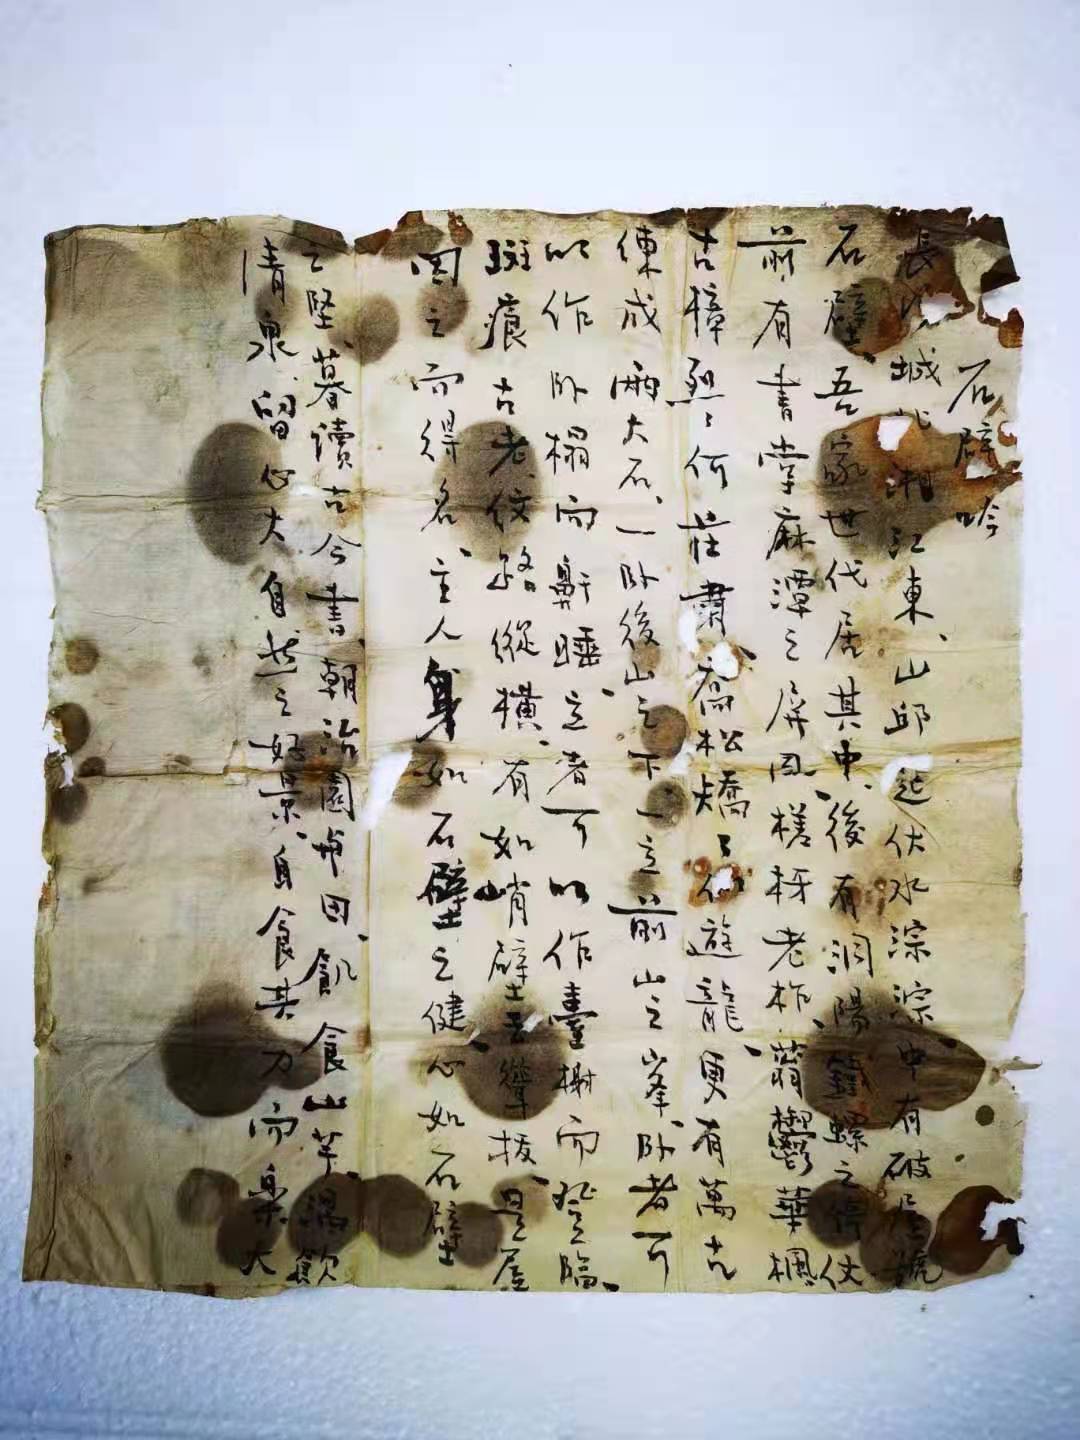 石壁吟
長沙城北湘江東、山邱起伏水淙淙中有破屋號
石壁、吾家世代居其中、後有洞陽螺之停伏
前有書堂麻潭之屏風、槎枒老柞、蓊鬱華楓、
古樟烈〻何莊肅、喬松矯〻似遊龍、更有萬古
煉成兩大石、一卧後山之下一立前山之峯、卧者可
以作卧榻而鼾睡、立者可以作臺榭而登臨、
斑痕古老、紋路縱橫、有如峭壁聳拔、是屋
因之而得名、主人身如石壁之健心如石壁
之堅、暮讀古今書、朝治園与田、飢食山芋、渴飲
清泉、留心大自然之好景、自食其力而樂大